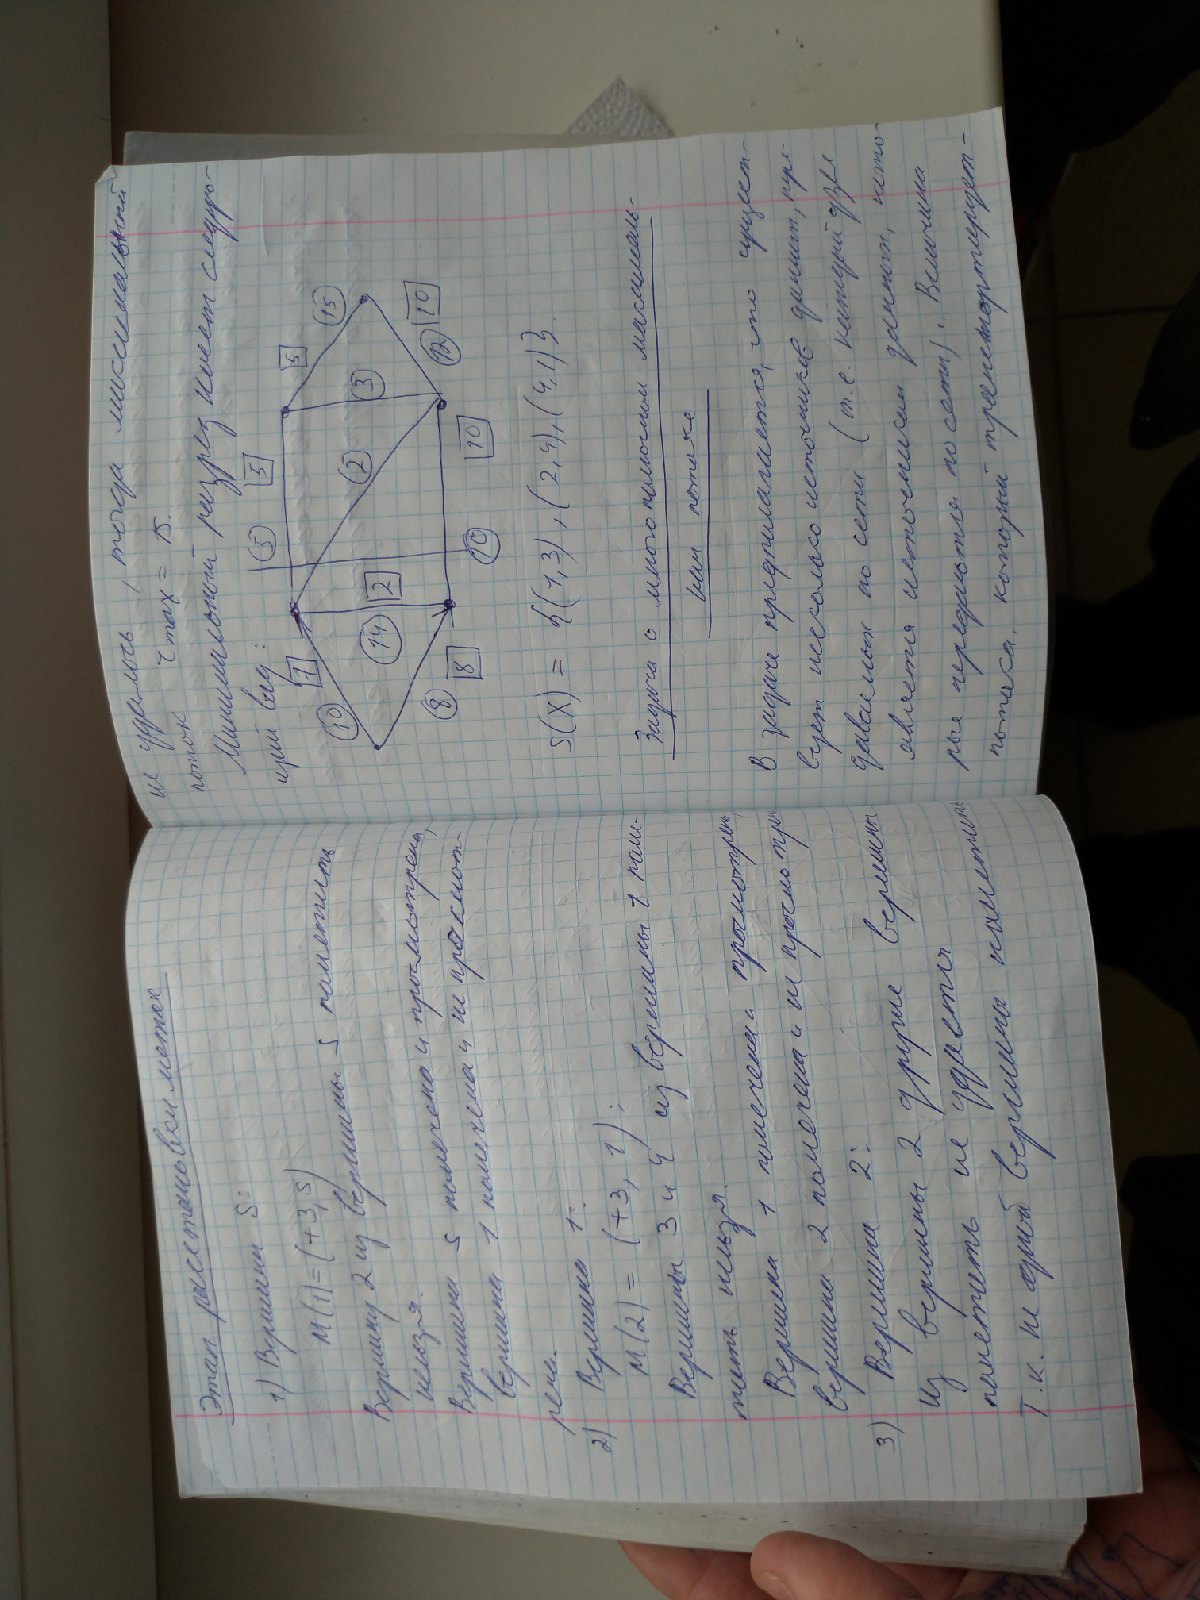 Этап расстановки меток
1) Вершина S:
M(1)=(+3,S)
Вершину 2 из вершины S пометить
нельзя.
Вершина S помечена и просмотрена,
вершина 1 помечена и не просмот-
рена.
2) Вершина 1:
M(2) = (+3, 1);
Вершины 3 и 4 из вершины 1 поме-
тить нельзя.
Вершина 1 помечена и просмотрена,
вершина 2 помечена и не просмотрен
3) Вершина 2:
Из вершины 2 другие вершины
пометить не удается
Т.к. ни одной вершины пометить
не удалось, тогда максимальный
поток max = 15.
Минимальный разрез имеет следую-
щий вид:
5 5
7 5
10 15
14 2 2 3
8 8 12 10
10 10
S(X) = {(1,3), (2,4), (4,1)}.
Задача о многополюсном максималь-
ном потоке
В задаче предполагается, что сущест-
вует несколько источников данных, пере-
даваемых по сети (т.е. каждый узел
является источником данных, кото-
рые передаются по сети). Величина
потока, который транспортирует-